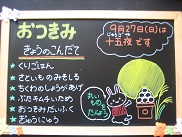 おつきみ
きょうのこんだて
★くりごはん
★さといものみそしる
★ちくわのしょうがあげ
★ぶたキムチいため
★おつきみだいふく
★ぎゅうにゅう
9月27日(日)は
じゅうごや
十五夜です
丸いもの
たんけん